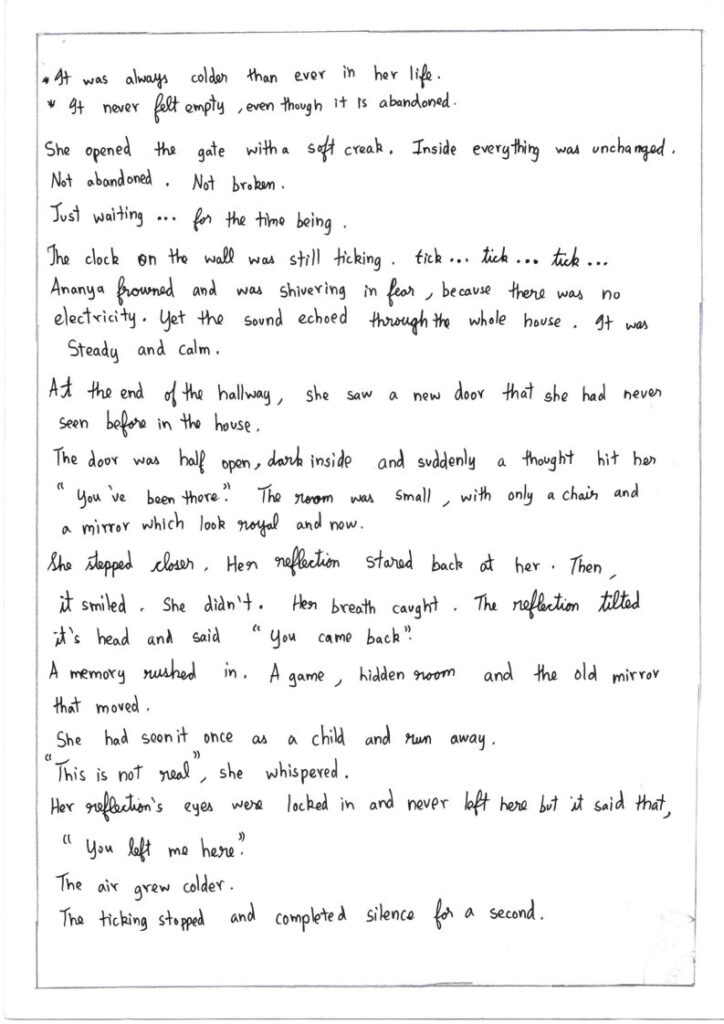 * It was always colder than ever in her life.
* It never felt empty, even though it is abandoned.
She opened the gate with a soft creak. Inside everything was unchanged.
Not abandoned. Not broken.
Just waiting ... for the time being.
The clock on the wall was still ticking. tick... tick... tick...
Ananya frowned and was shivering in fear, because there was no
electricity. Yet the sound echoed through the whole house. It was
Steady and calm.
At the end of the hallway, she saw a new door that she had never
seen before in the house.
The door was half open, dark inside and suddenly a thought hit her
"You've been there." The room was small, with only a chair and
a mirror which look royal and now.
She stepped closer. Her reflection stared back at her. Then,
it smiled. She didn't. Her breath caught. The reflection tilted
it's head and said "You came back".
A memory rushed in. A game, hidden room and the old mirror
that moved.
She had seen it once as a child and run away.
"This is not real", she whispered.
Her reflection's eyes were locked in and never left here but it said that,
"You left me here."
The air grew colder.
The ticking stopped and completed silence for a second.